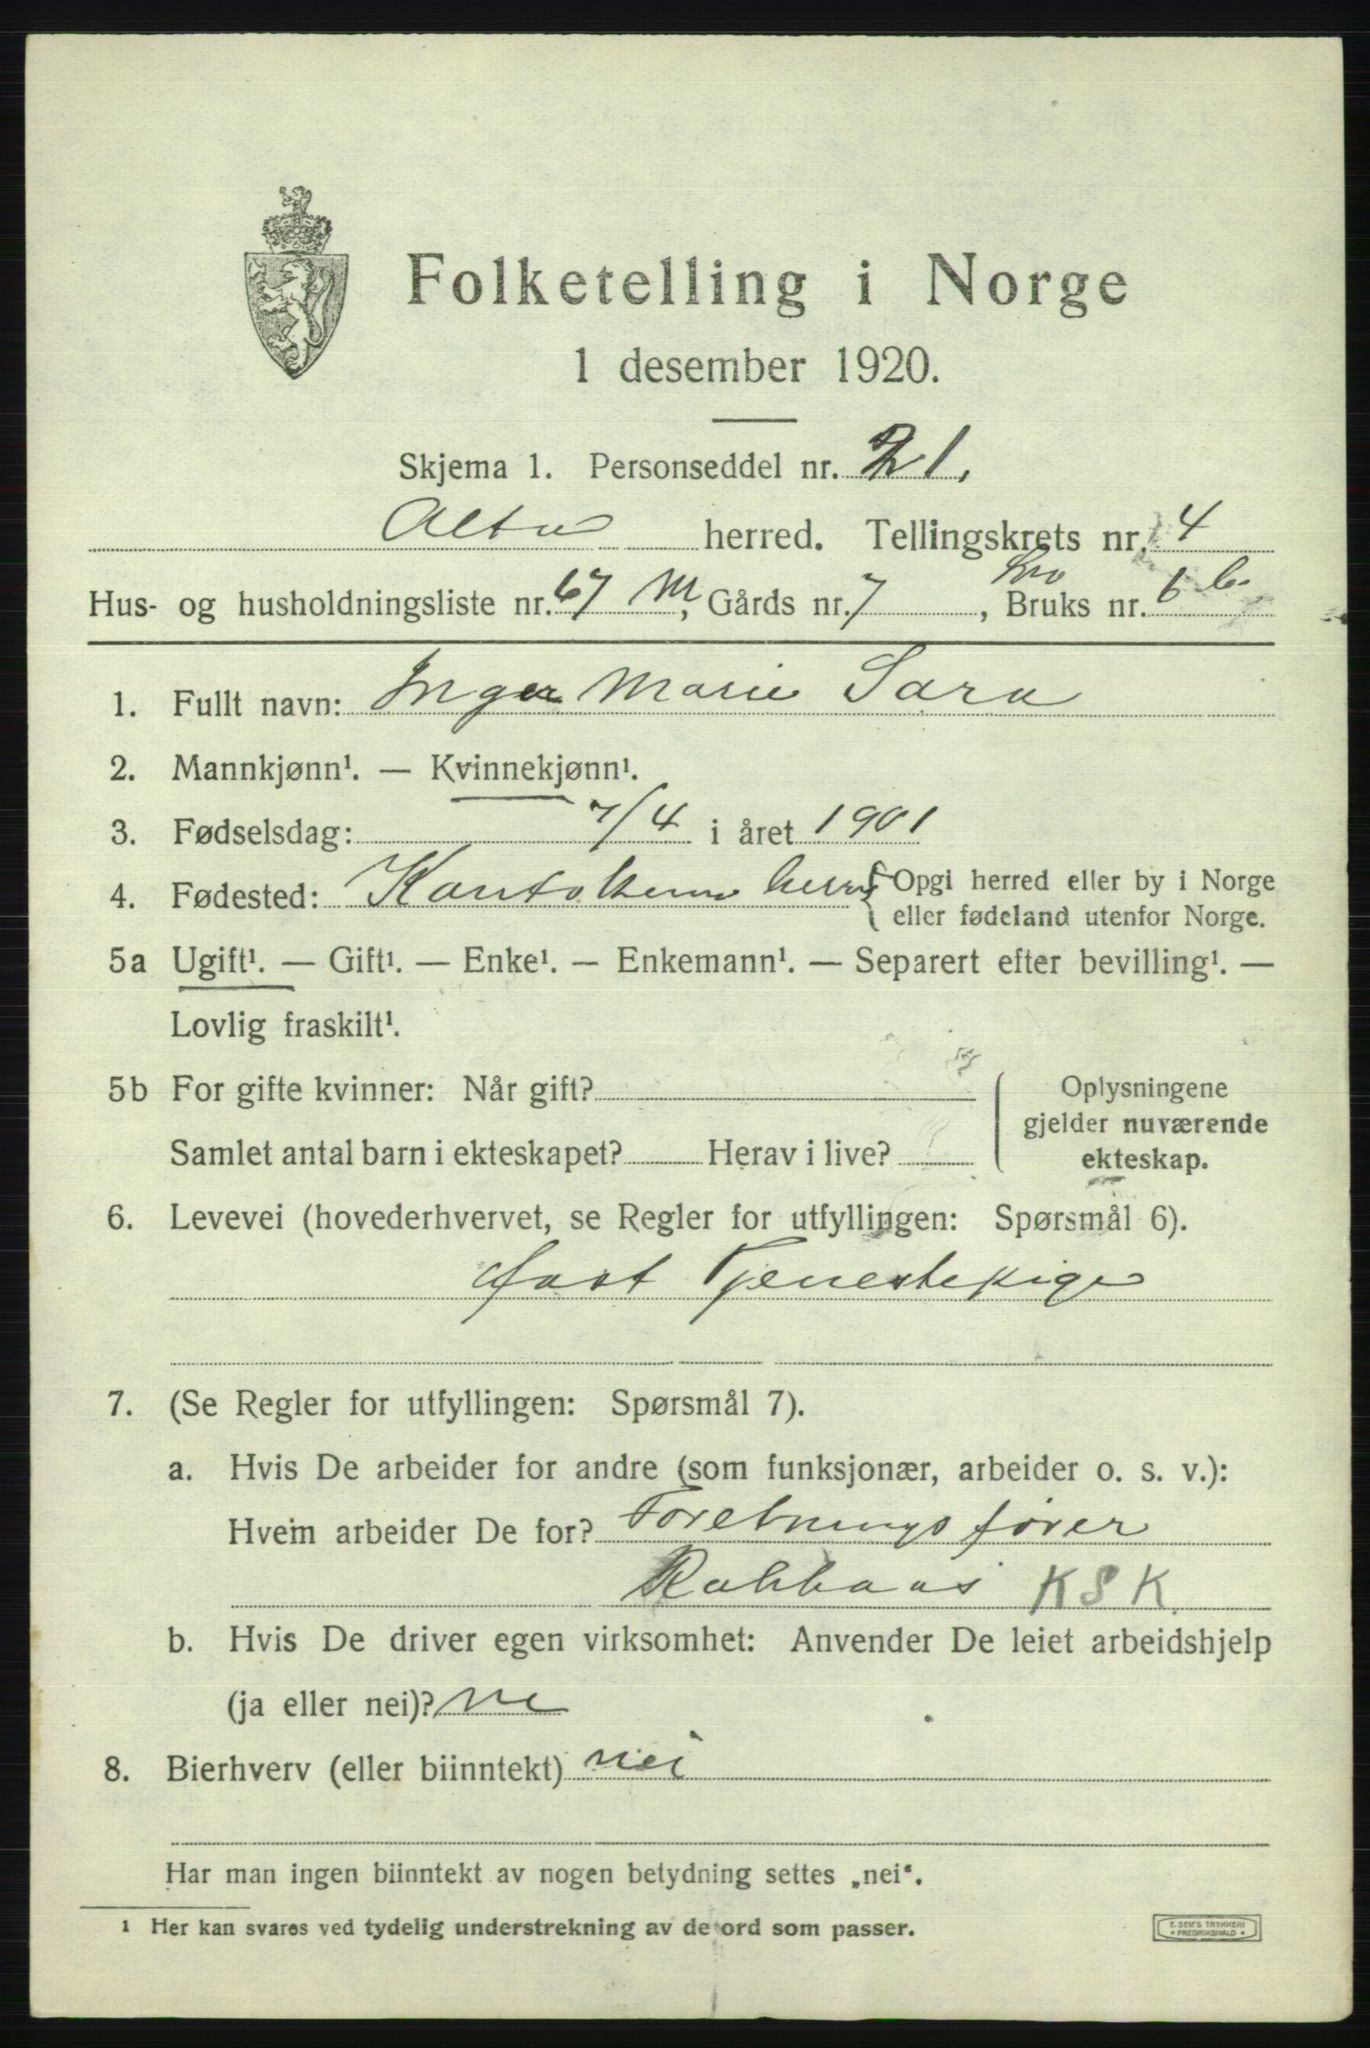 Folketelling i Norge
1 desember 1920.
Skjema 1. Personseddel nr. 21.
Alta herred. Tellingskrets nr. 4
Hus- og husholdningsliste nr. 67 M, Gårds nr. 7, Bruks nr. 6
1. Fullt navn: Inger Marie Sara
2. Mannkjønn¹. — Kvinnekjønn¹.
3. Fødselsdag: 7/4 i året 1901
4. Fødested: Kautokeino herred { Opgi herred eller by i Norge
eller fødeland utenfor Norge.
5a Ugift¹. — Gift¹. — Enke¹. — Enkemann¹. — Separert efter bevilling¹. —
Lovlig fraskilt¹.
5b For gifte kvinner: Når gift?
Samlet antal barn i ekteskapet? Herav i live?
Oplysningene
gjelder nuværende
ekteskap.
6. Levevei (hovederhvervet, se Regler for utfyllingen: Spørsmål 6).
fast Tjenestepige
7. (Se Regler for utfyllingen: Spørsmål 7).
a. Hvis De arbeider for andre (som funksjonær, arbeider o. s. v.):
Hvem arbeider De for? Foretningsfører
KSK.
b. Hvis De driver egen virksomhet: Anvender De leiet arbeidshjelp
(ja eller nei)? ne
8. Bierhverv (eller biinntekt) nei
Har man ingen biinntekt av nogen betydning settes „nei“.
¹ Her kan svares ved tydelig understrekning av de ord som passer.
E. SEM'S TRYKKERI
FREDRIKSHALD